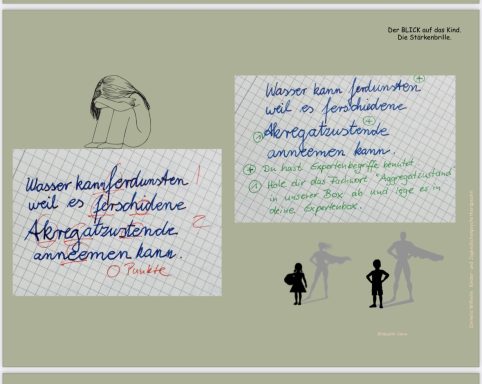 Der BLICK auf das Kind.
Die Stärkenbrille.
Wasser kann ferdunsten !
weil es ferschidene
Akregatzustende 2
anneemen kann.
0 Punkte
Wasser kann ferdunsten
weil es ferschidene
Akregatzustende
anneemen kann.
+ Du hast Expertenbegriffe benutzt
Hole dir das Fachwort "Aggregatzustand"
in unserer Box ab und lege es in
deine Expertenbox.